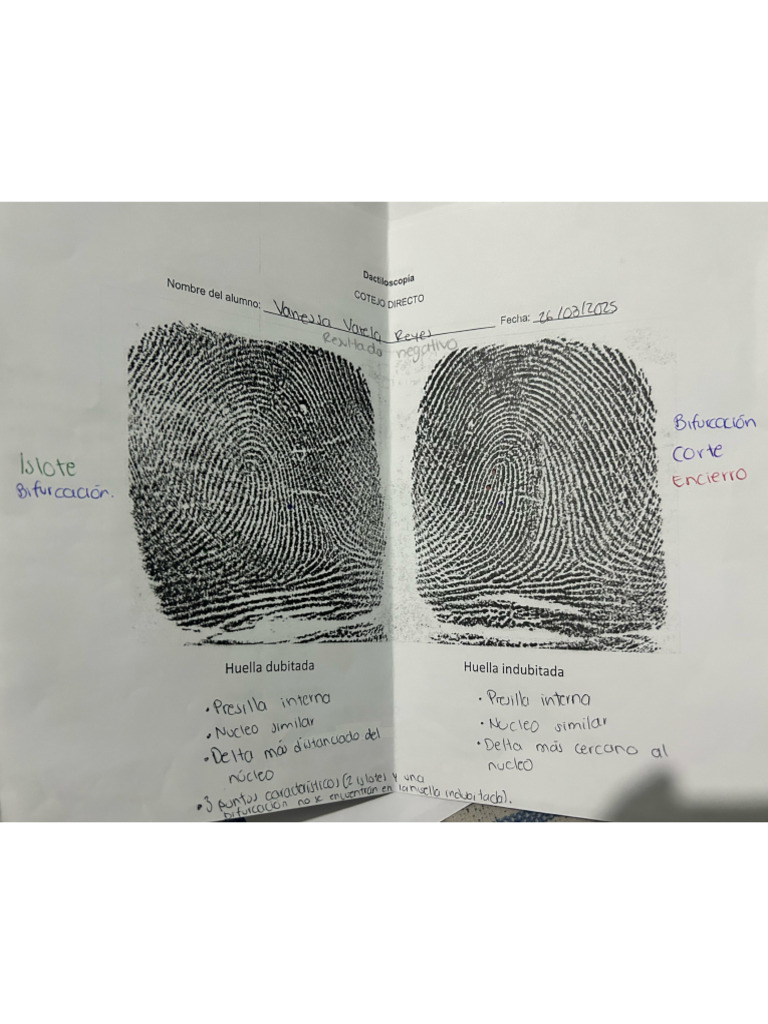 Dactiloscopia
COTEJO DIRECTO
Nombre del alumno: Vanessa Varela Reyes Fecha: 26/03/2025
Resultado negativo
Islote
Bifurcación.
Bifurcación
corte
Encierro
Huella dubitada
• Presilla interna
• Nucleo similar
• Delta más distanciado del
núcleo
• 3 puntos caracteristicos (2 islotes y una
bifurcación no se encuentran en la huella indubitada).
Huella indubitada
• Presilla interna
• Nucleo similar
• Delta más cercano al
nucleo